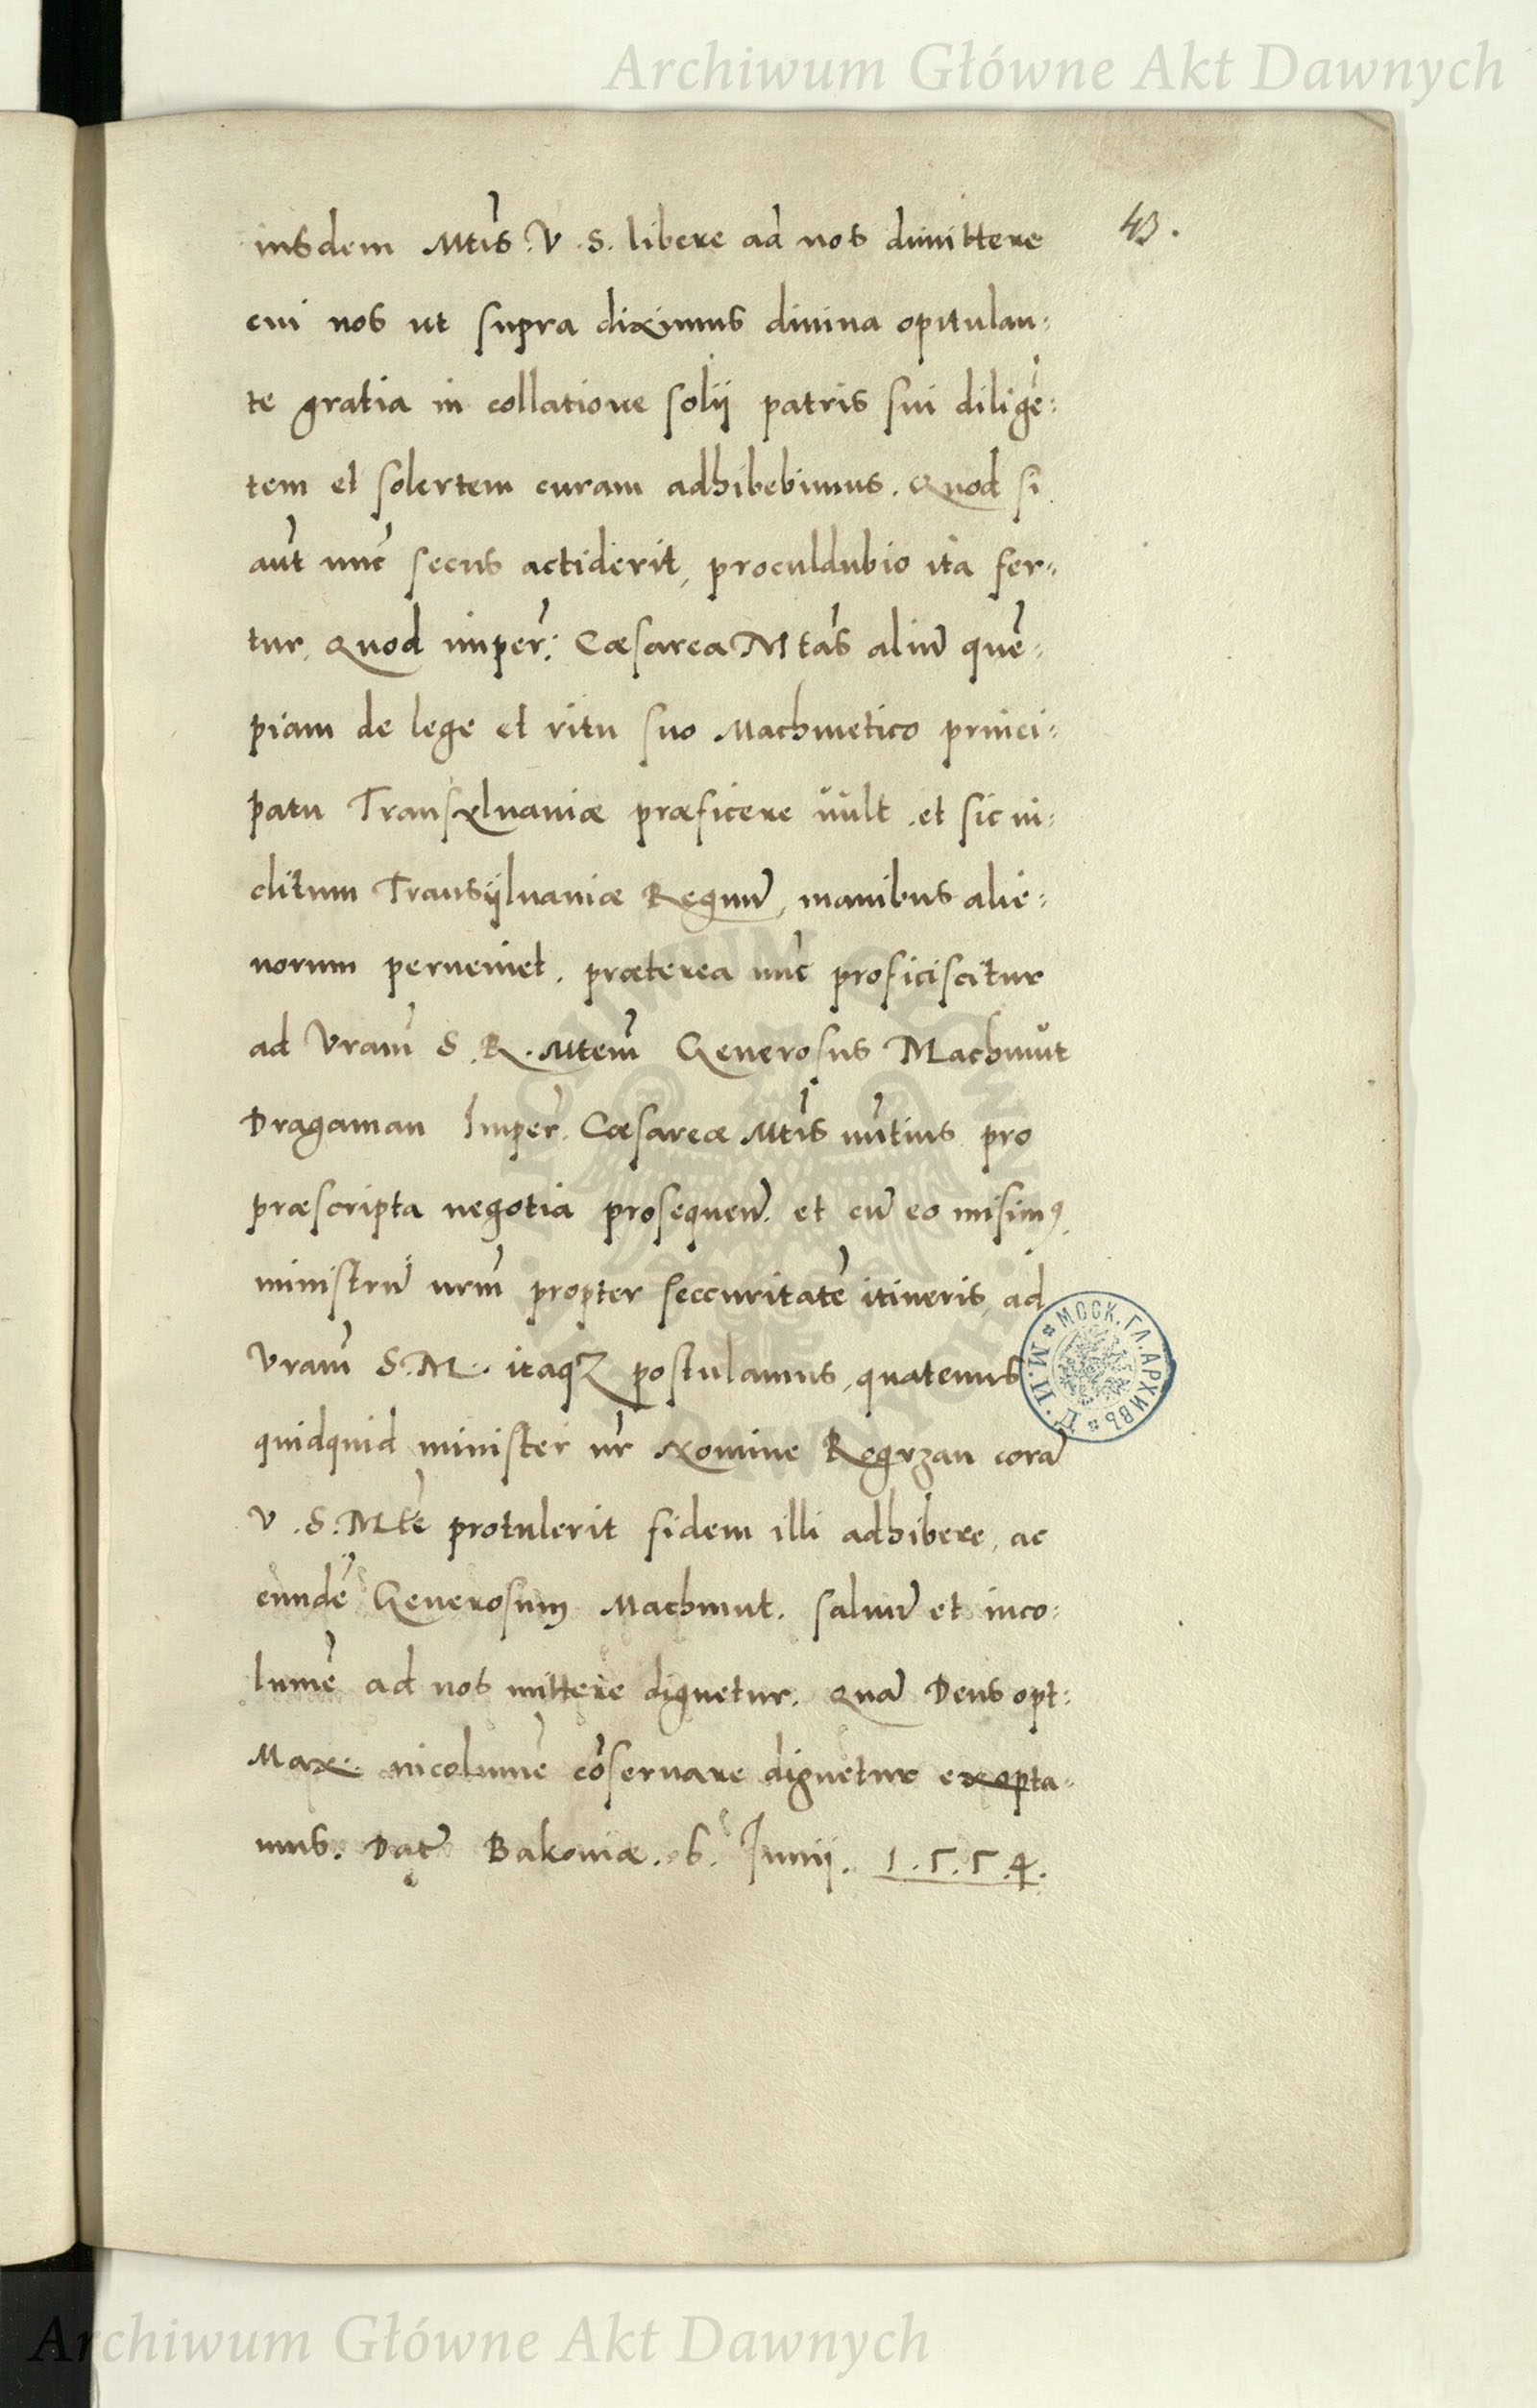 Archiwum Główne Akt Dawnych
43.
iusdem Mtis. V. S. libere ad nos dimittere
cui nos ut supra diximus divina opitulan:
te gratia in collatione solij patris sui diligē:
tem et solertem curam adhibebimus. Quod si
aut nuc secus actiderit, proculdubio ita fer:
tur, Quod imper: Cæsarea Mtas aliū quē:
piam de lege et ritu suo Machmetico princi:
patu Transylvaniæ præficere vult. et sic in:
clitum Transÿlvaniæ Regnū, manibus alie:
norum perveniet. præterea nuc proficiscitur
ad Vram S. R. Mtem Generosus Machmut
Dragaman Imper. Cæsareæ Mtis nutius pro
præscripta negotia prosequen. et cū eo misim9
ministrū nrm propter seccuritatē itineris, ad
Vram S. M. itaqz postulamus, quatenus
quidquid minister nr Nomine Regrzan corā
V. S. Mte protulerit fidem illi adhibere, ac
eundē Generosum Machmut. salvū et inco:
lumē ad nos mittere dignetur. Quā Deus opt:
Max. incolumē cōservare dignetur exopta:
mus. Dat Bakoviæ. 6. Junij. 1.5.5.4.
МОСК. ГЛ. АРХИВЪ * М. И. Д. *
Archiwum Główne Akt Dawnych